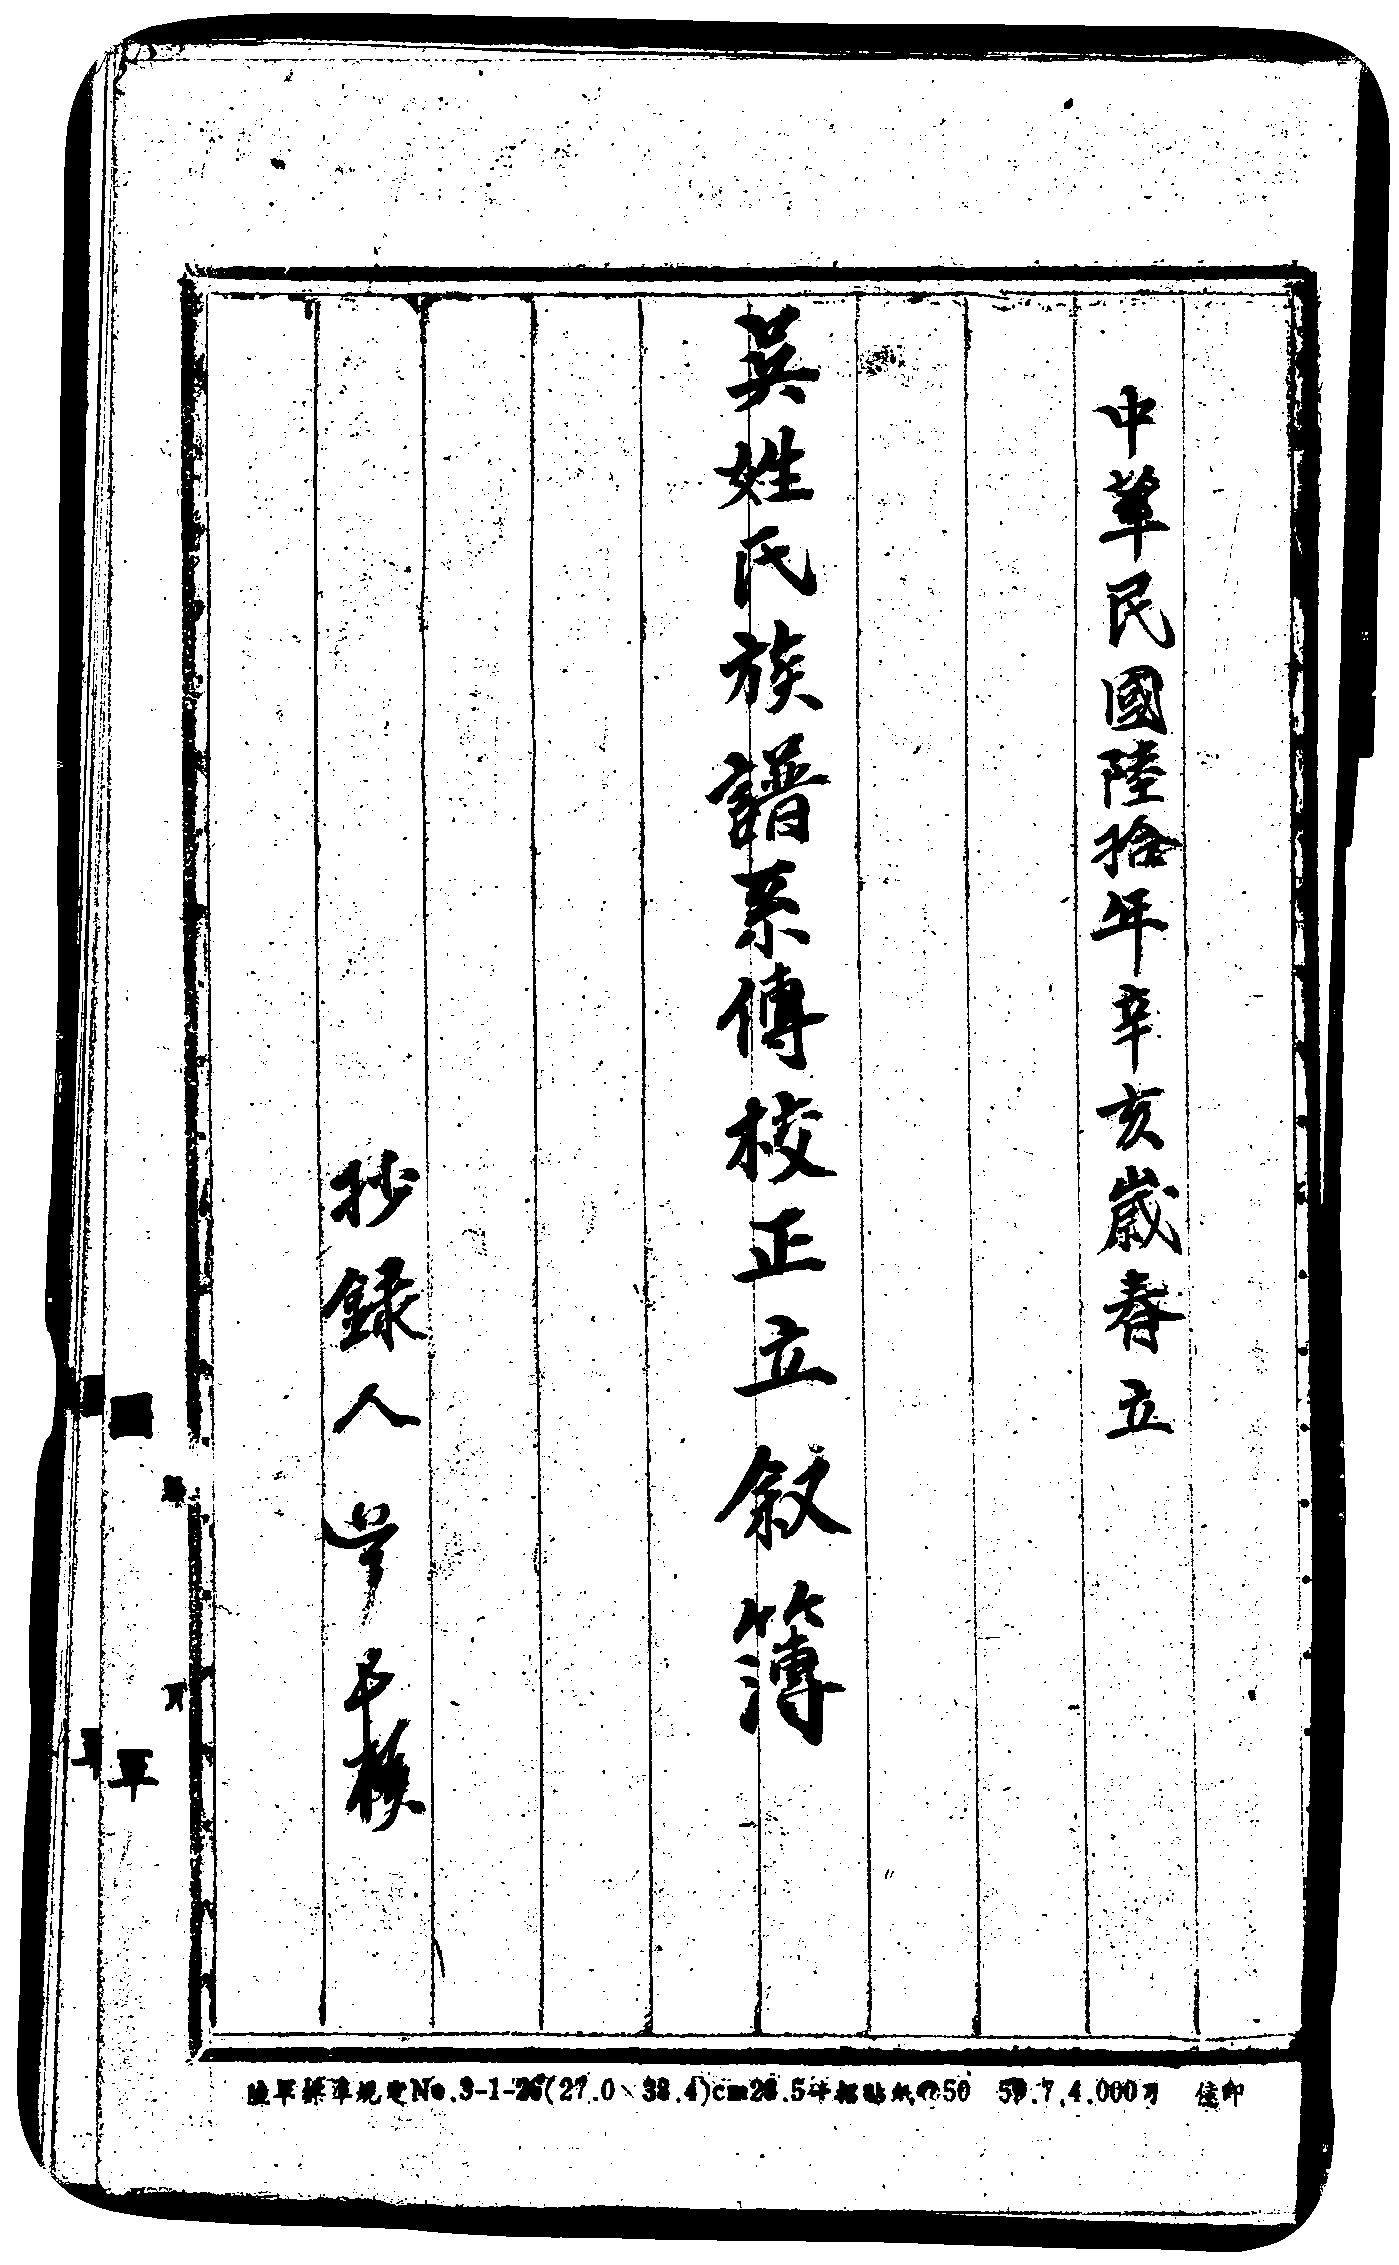 中華民國陸拾年辛亥歲春立
吳姓氏族譜系傳校正立叙簿
抄錄人
陸軍標準規定No.3-1-26(27.0×38.4)cm 50 59.7.4.000刀 佳印